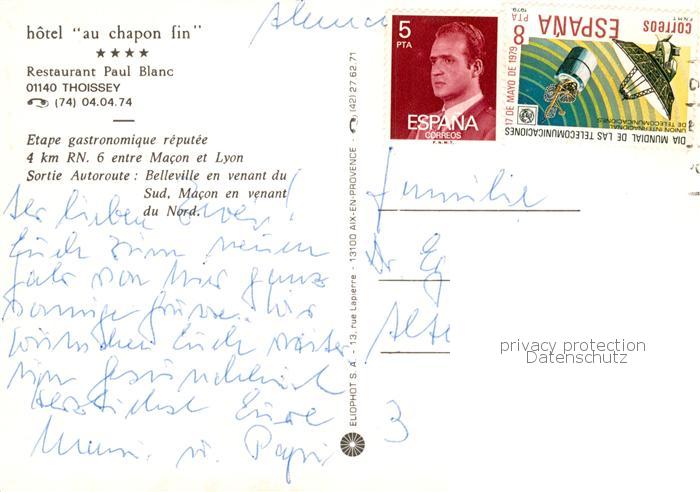 hôtel "au chapon fin"
★★★★
Restaurant Paul Blanc
01140 THOISSEY
(74) 04.04.74
Etape gastronomique réputée
4 km RN. 6 entre Maçon et Lyon
Sortie Autoroute : Belleville en venant du
Sud, Maçon en venant
du Nord.
lieben
Euch zum neuen
Jahr von hier ganz
sonnige Grüsse. Wir
wünschen Euch weiter
Gesundheit
Herzlichst Eure
u. Papi
ELIOPHOT S. A. - 13, rue Lapierre - 13100 AIX-EN-PROVENCE - ☎ (42) 27.62.71
5
PTA
ESPAÑA
CORREOS
F.N.M.T.
8
PTA
ESPAÑA
correos
1979
F.N.M.T.
17 DE MAYO DE 1979
DIA MUNDIAL DE LAS TELECOMUNICACIONES
UNION INTERNACIONAL
DE TELECOMUNICACIONES
Familie
Dr
3
privacy protection
Datenschutz